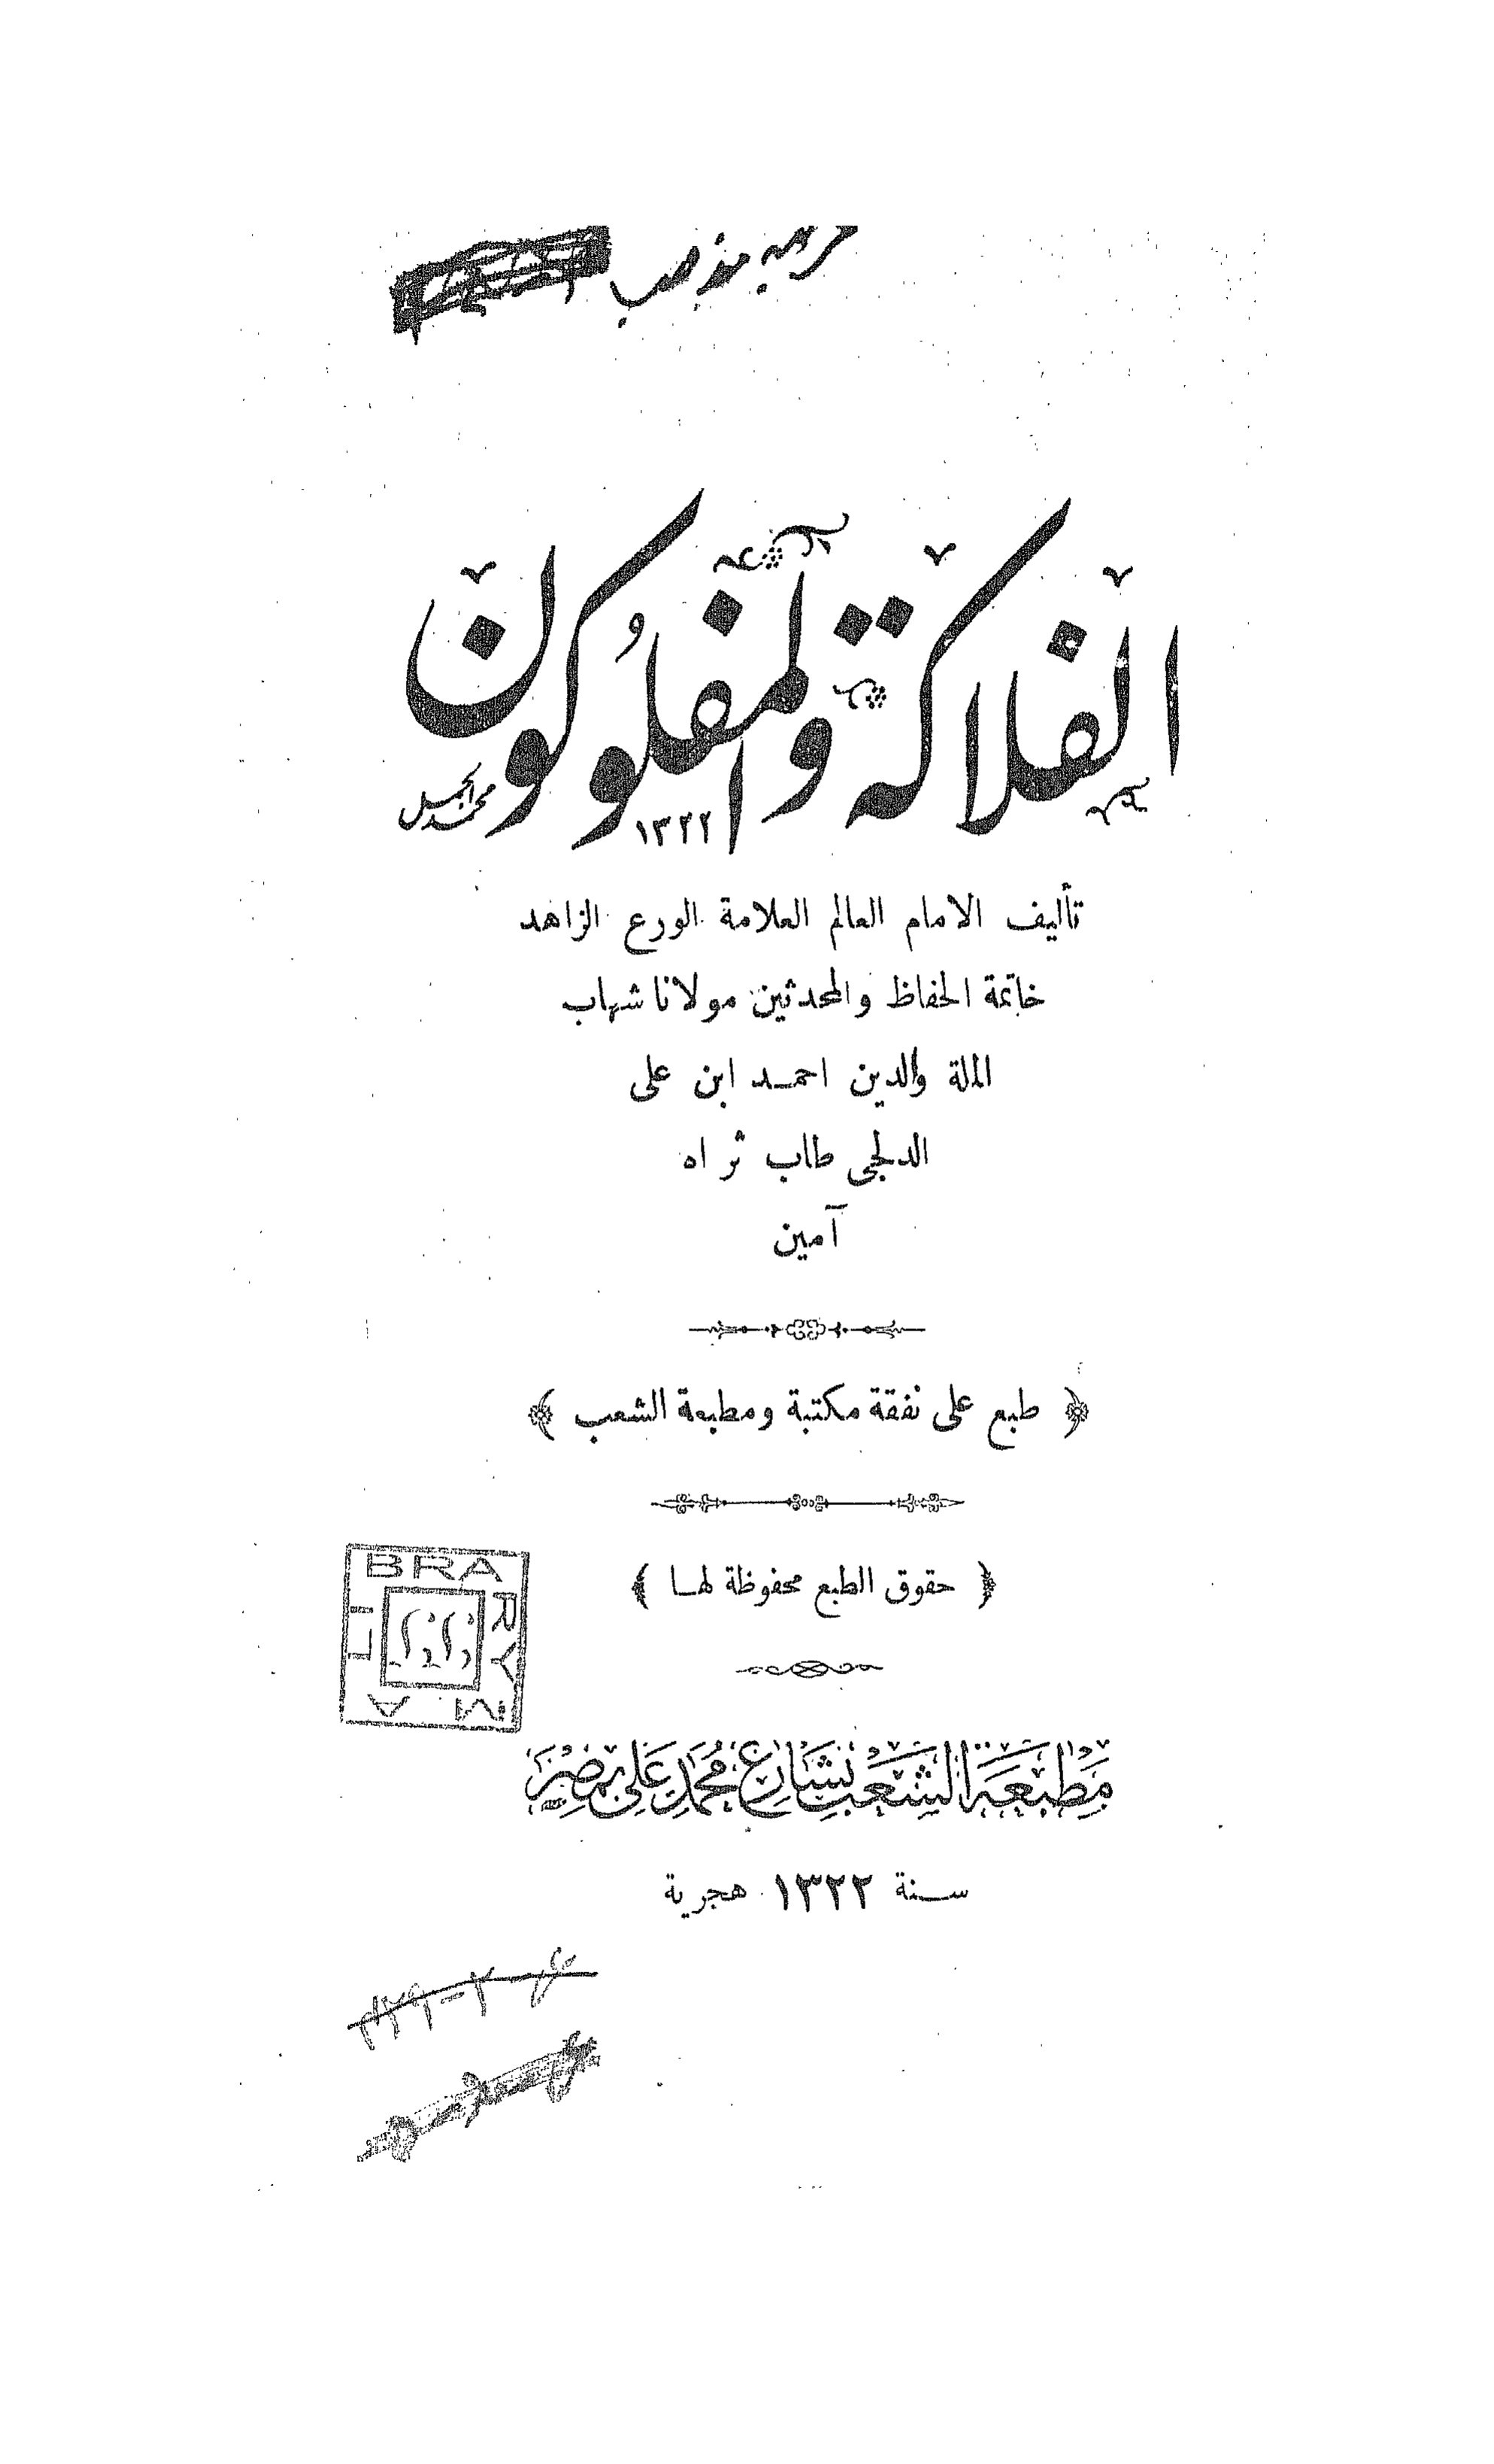 الفلاكة والمفلوكون
١٣٢٢
تأليف الامام العالم العلامة الورع الزاهد
خاتمة الحفاظ والمحدثين مولانا شهاب
الملة والدين احمد ابن على
الدلجى طاب ثراه
آمين
﴿ طبع على نفقة مكتبة ومطبعة الشعب ﴾
﴿ حقوق الطبع محفوظة لها ﴾
BRA
مَطبَعَة الشَعَب بشَارع مُحَمَّد عَلى بمصْر
سنة ١٣٢٢ هجرية